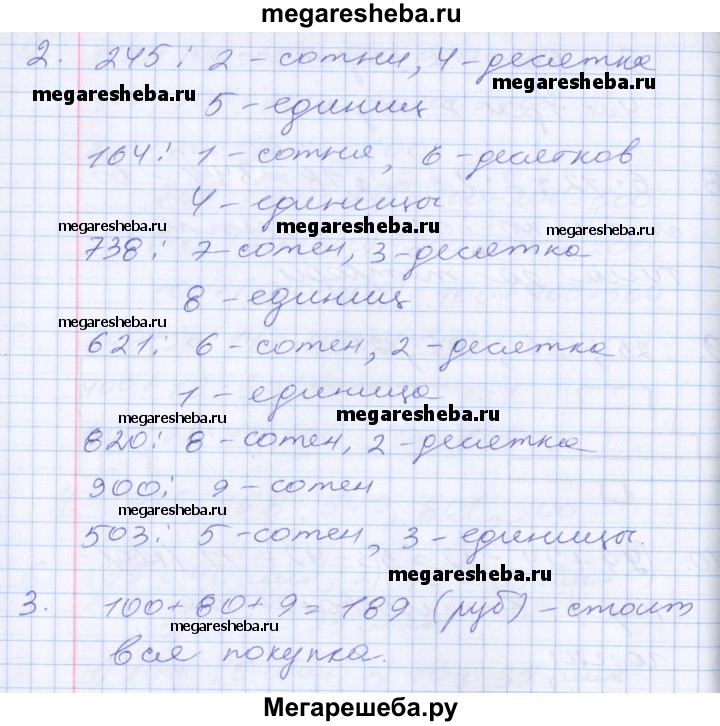 megaresheba.ru
2. 245: 2 - сотни, 4 - десятка
megaresheba.ru megaresheba.ru
5 - единиц
164: 1 - сотня, 6 - десятков
4 - единицы
megaresheba.ru megaresheba.ru
738: 7 - сотен, 3 - десятка
8 - единиц
megaresheba.ru
621: 6 - сотен, 2 - десятка
1 - единица
megaresheba.ru megaresheba.ru
820: 8 - сотен, 2 - десятка
900: 9 - сотен
megaresheba.ru
503: 5 - сотен, 3 - единицы.
megaresheba.ru
3. 100 + 80 + 9 = 189 (руб) - стоит
megaresheba.ru
вся покупка.
Мегарешеба.ру